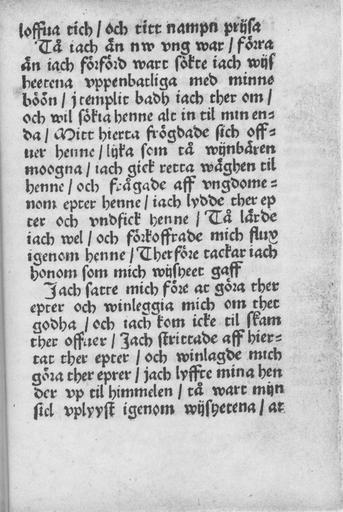 loffua tich / och titt nampn prijsa
Tå iach än nw vng war / förra
än iach förförd wart sökte iach wijs
heetena vppenbatliga med minne
böön / j templit badh iach ther om /
och wil sökia henne alt in til min en-
da / Mitt hierta frögdade sich off-
uer henne / lijka som tå wijnbären
moogna / iach gick retta wäghen til
henne / och frågade aff vngdome-
nom epter henne / iach lydde ther ep
ter och vndfick henne / Tå lärde
iach wel / och förkoffrade mich flux
igenom henne / Therföre tackar iach
honom som mich wijsheet gaff
Jach satte mich före at göra ther
epter och winleggia mich om thet
godha / och iach kom icke til skam
ther offuer / Jach strittade aff hier-
tat ther epter / och winlagde mich
göra ther eprer / jach lyffte mina hen
der vp til himmelen / tå wart mijn
siel vplyyst igenom wijshetena / at